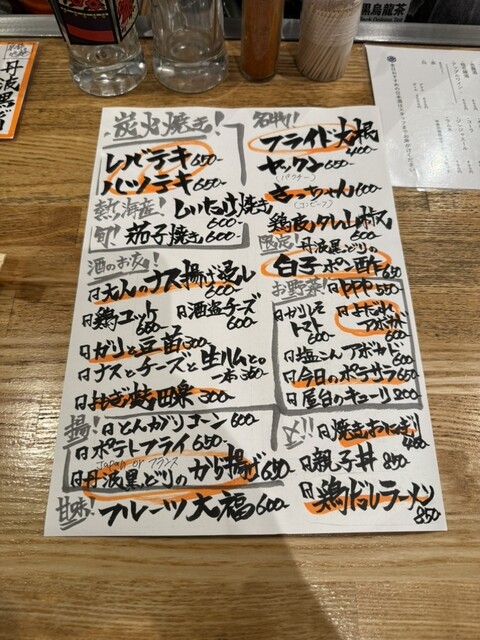 黒烏龍茶
丹波黒どり
炭火焼き!
レバテキ 650-
ハツテキ 650-
熱海産! しいたけ焼き 600-
旬! 茄子焼き 600-
酒のお友!
大人のナス揚げ返し 600-
鶏ユッケ 680-
酒盗チーズ 600-
ガリと豆苗 300-
ナスとチーズと生ハムとの 一本 360-
300-
揚! とんがりコーン 600
ポテトフライ 650-
丹波黒どりのから揚げ 650-
甘味! フルーツ大福 600-
名物!
フライド大根 400-
ヤックン 650-
(パクチー)
さっちゃん 600
(コンビーフ)
鶏皮タレ山椒 600-
限定! 丹波黒どりの
白子ポン酢 650
お野菜! PPP 550-
ガリしそトマト 600
よだれアボカド 600
塩こんアボカド 600
今日のポテサラ 650
屋台のキューリ 800
〆!! 焼きおにぎり 400
親子丼 850
鶏パイタンラーメン 850